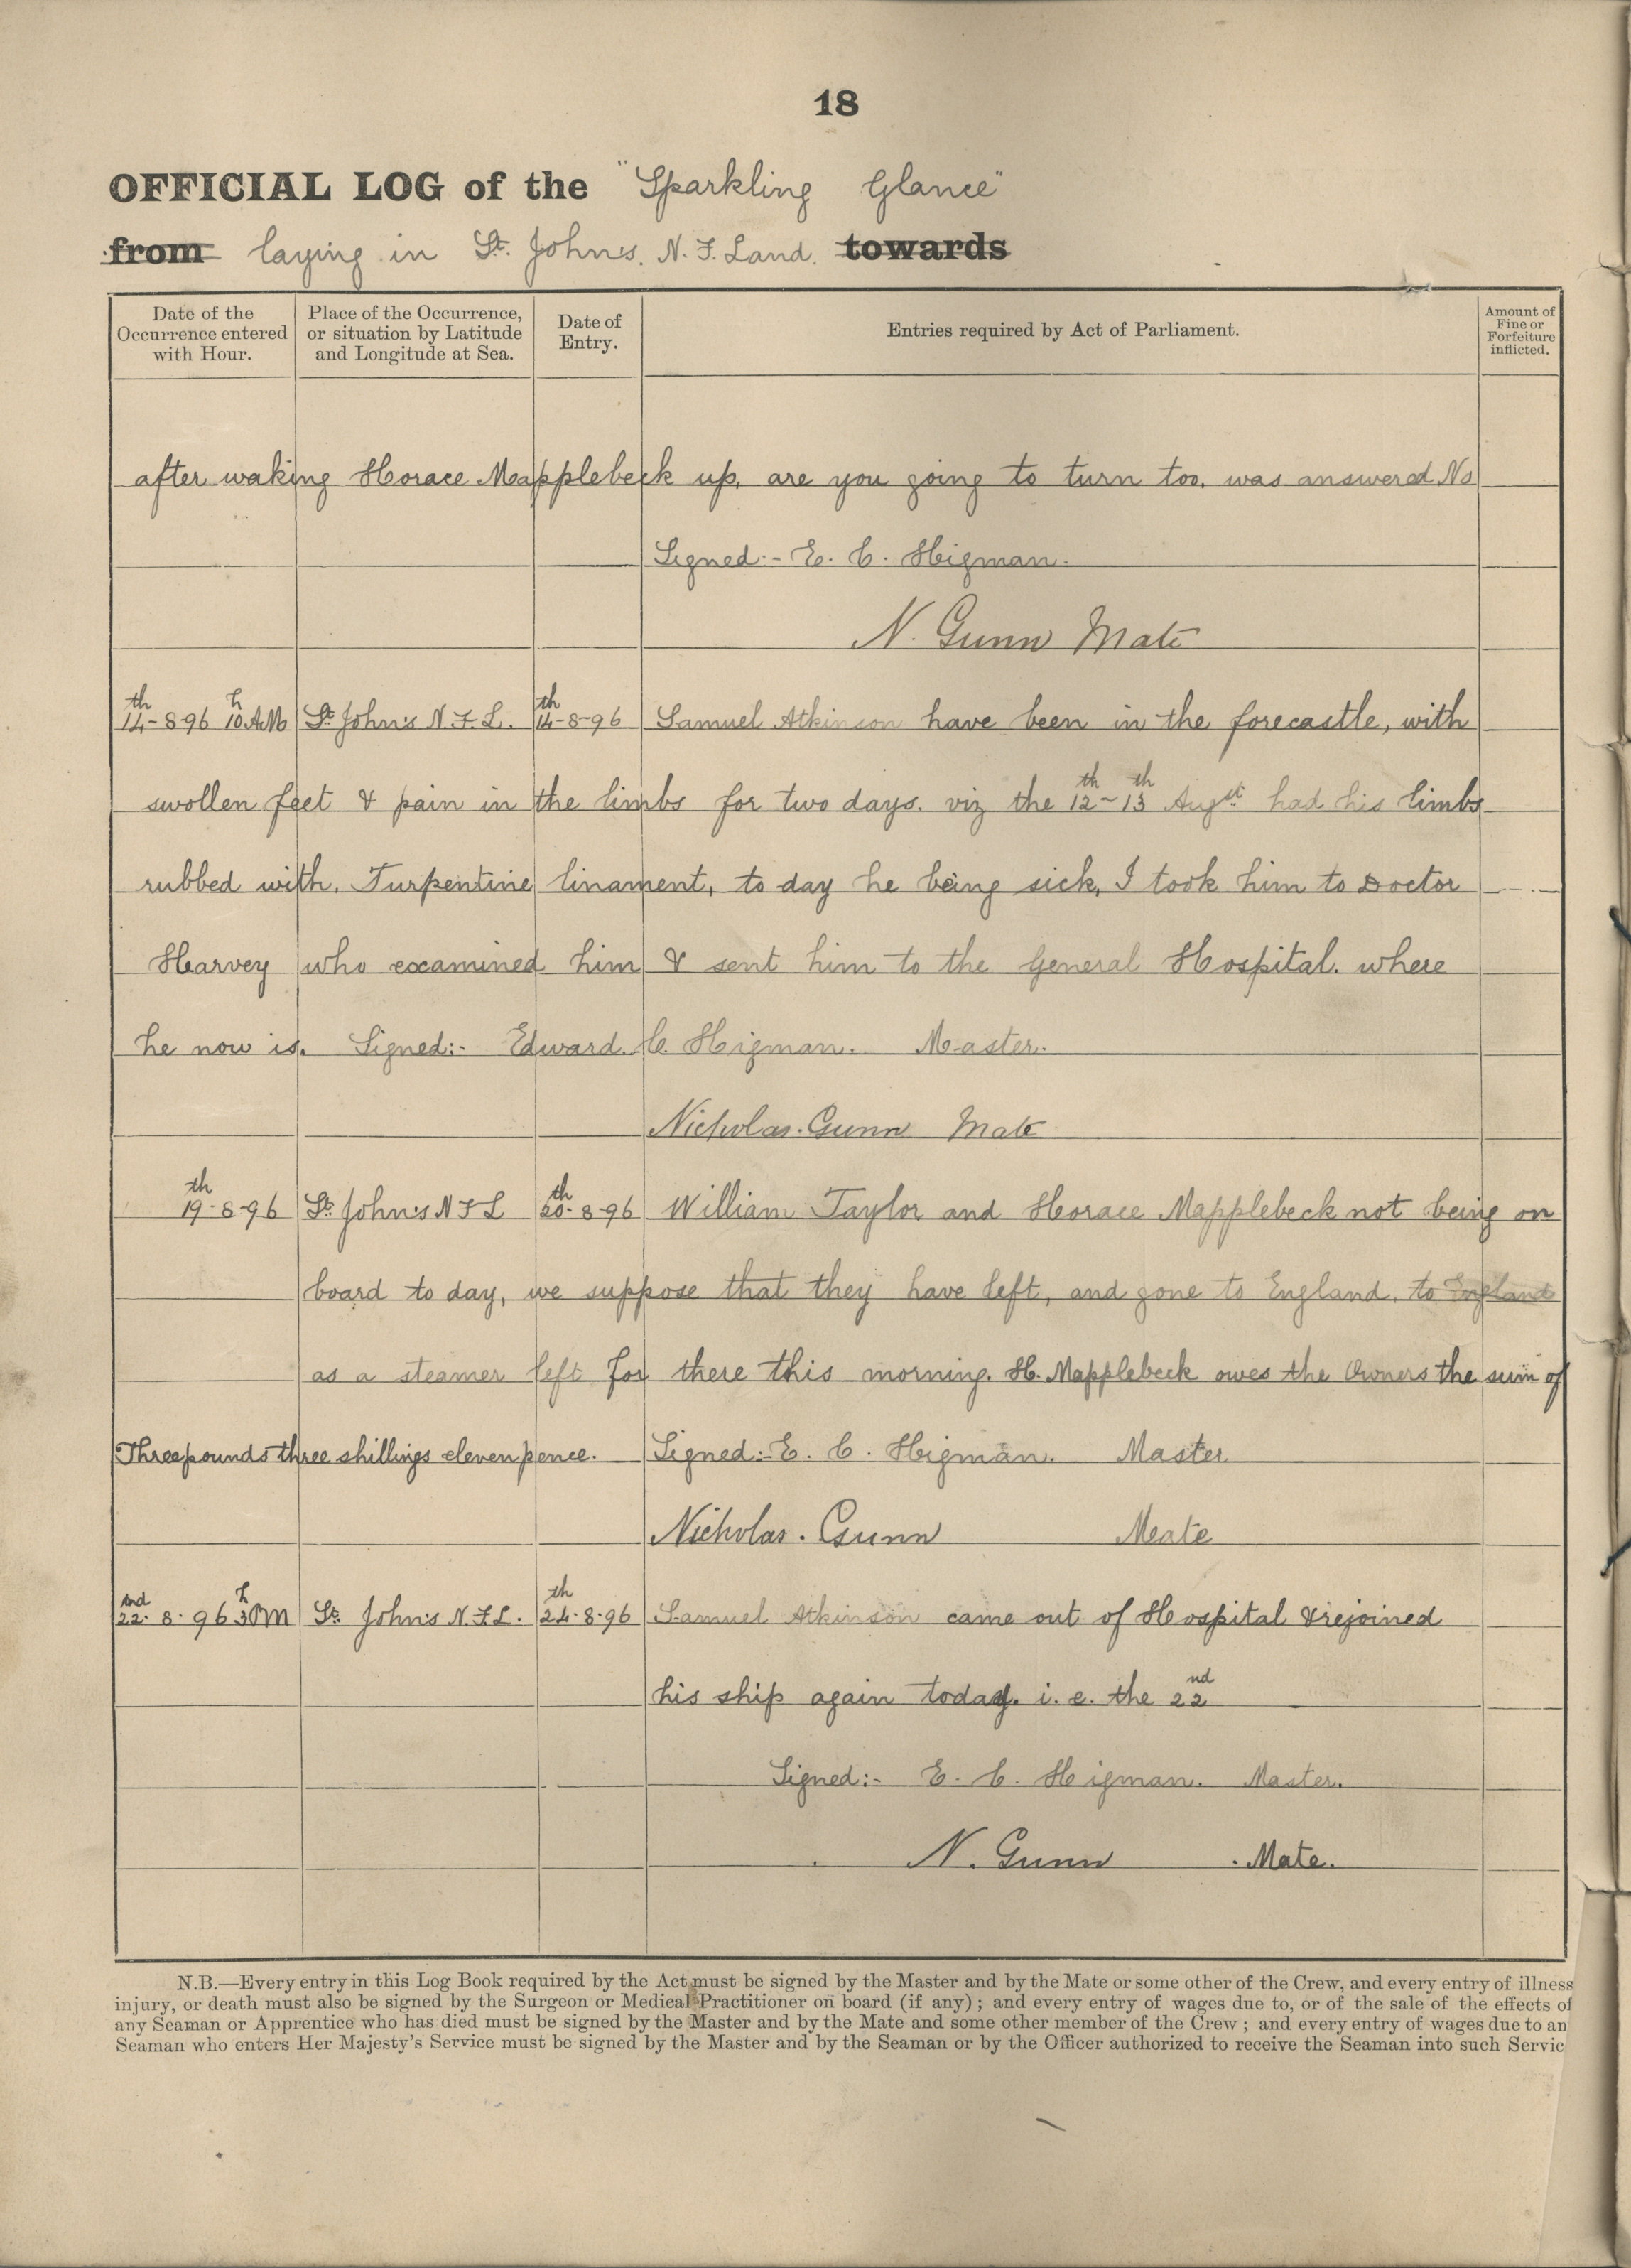 18
OFFICIAL LOG of the "Sparkling Glance"
from laying in St. John's. N. F. Land. towards
Date of the Occurrence entered with Hour.
Place of the Occurrence, or situation by Latitude and Longitude at Sea.
Date of Entry.
Entries required by Act of Parliament.
Amount of Fine or Forfeiture inflicted.
after waking Horace Mapplebeck up, are you going to turn too, was answered No
Signed:- E. C. Higman.
N. Gunn Mate
14th-8-96 10h AM St. John's N.F.L. 14th-8-96 Samuel Atkinson have been in the forecastle, with
swollen feet & pain in the limbs for two days. viz the 12th-13th Augst. had his limbs
rubbed with. Turpentine linament, to day he being sick, I took him to Doctor
Harvey who examined him & sent him to the General Hospital. where
he now is. Signed:- Edward. C. Higman. Master.
Nicholas. Gunn Mate
19th-8-96 St. John's N F L 20th-8-96 William Taylor and Horace Mapplebeck not being on
board to day, we suppose that they have left, and gone to England, to England
as a steamer left for there this morning. H. Mapplebeck owes the Owners the sum of
Three pounds three shillings eleven pence. Signed:- E. C. Higman. Master
Nicholas. Gunn Mate
22nd. 8. 96 3h PM St. John's N.F.L. 24th.8.96 Samuel Atkinson came out of Hospital & rejoined
his ship again today. i. e. the 22nd
Signed:- E. C. Higman. Master.
N. Gunn Mate.
N.B.—Every entry in this Log Book required by the Act must be signed by the Master and by the Mate or some other of the Crew, and every entry of illness
injury, or death must also be signed by the Surgeon or Medical Practitioner on board (if any); and every entry of wages due to, or of the sale of the effects of
any Seaman or Apprentice who has died must be signed by the Master and by the Mate and some other member of the Crew; and every entry of wages due to an
Seaman who enters Her Majesty's Service must be signed by the Master and by the Seaman or by the Officer authorized to receive the Seaman into such Servic